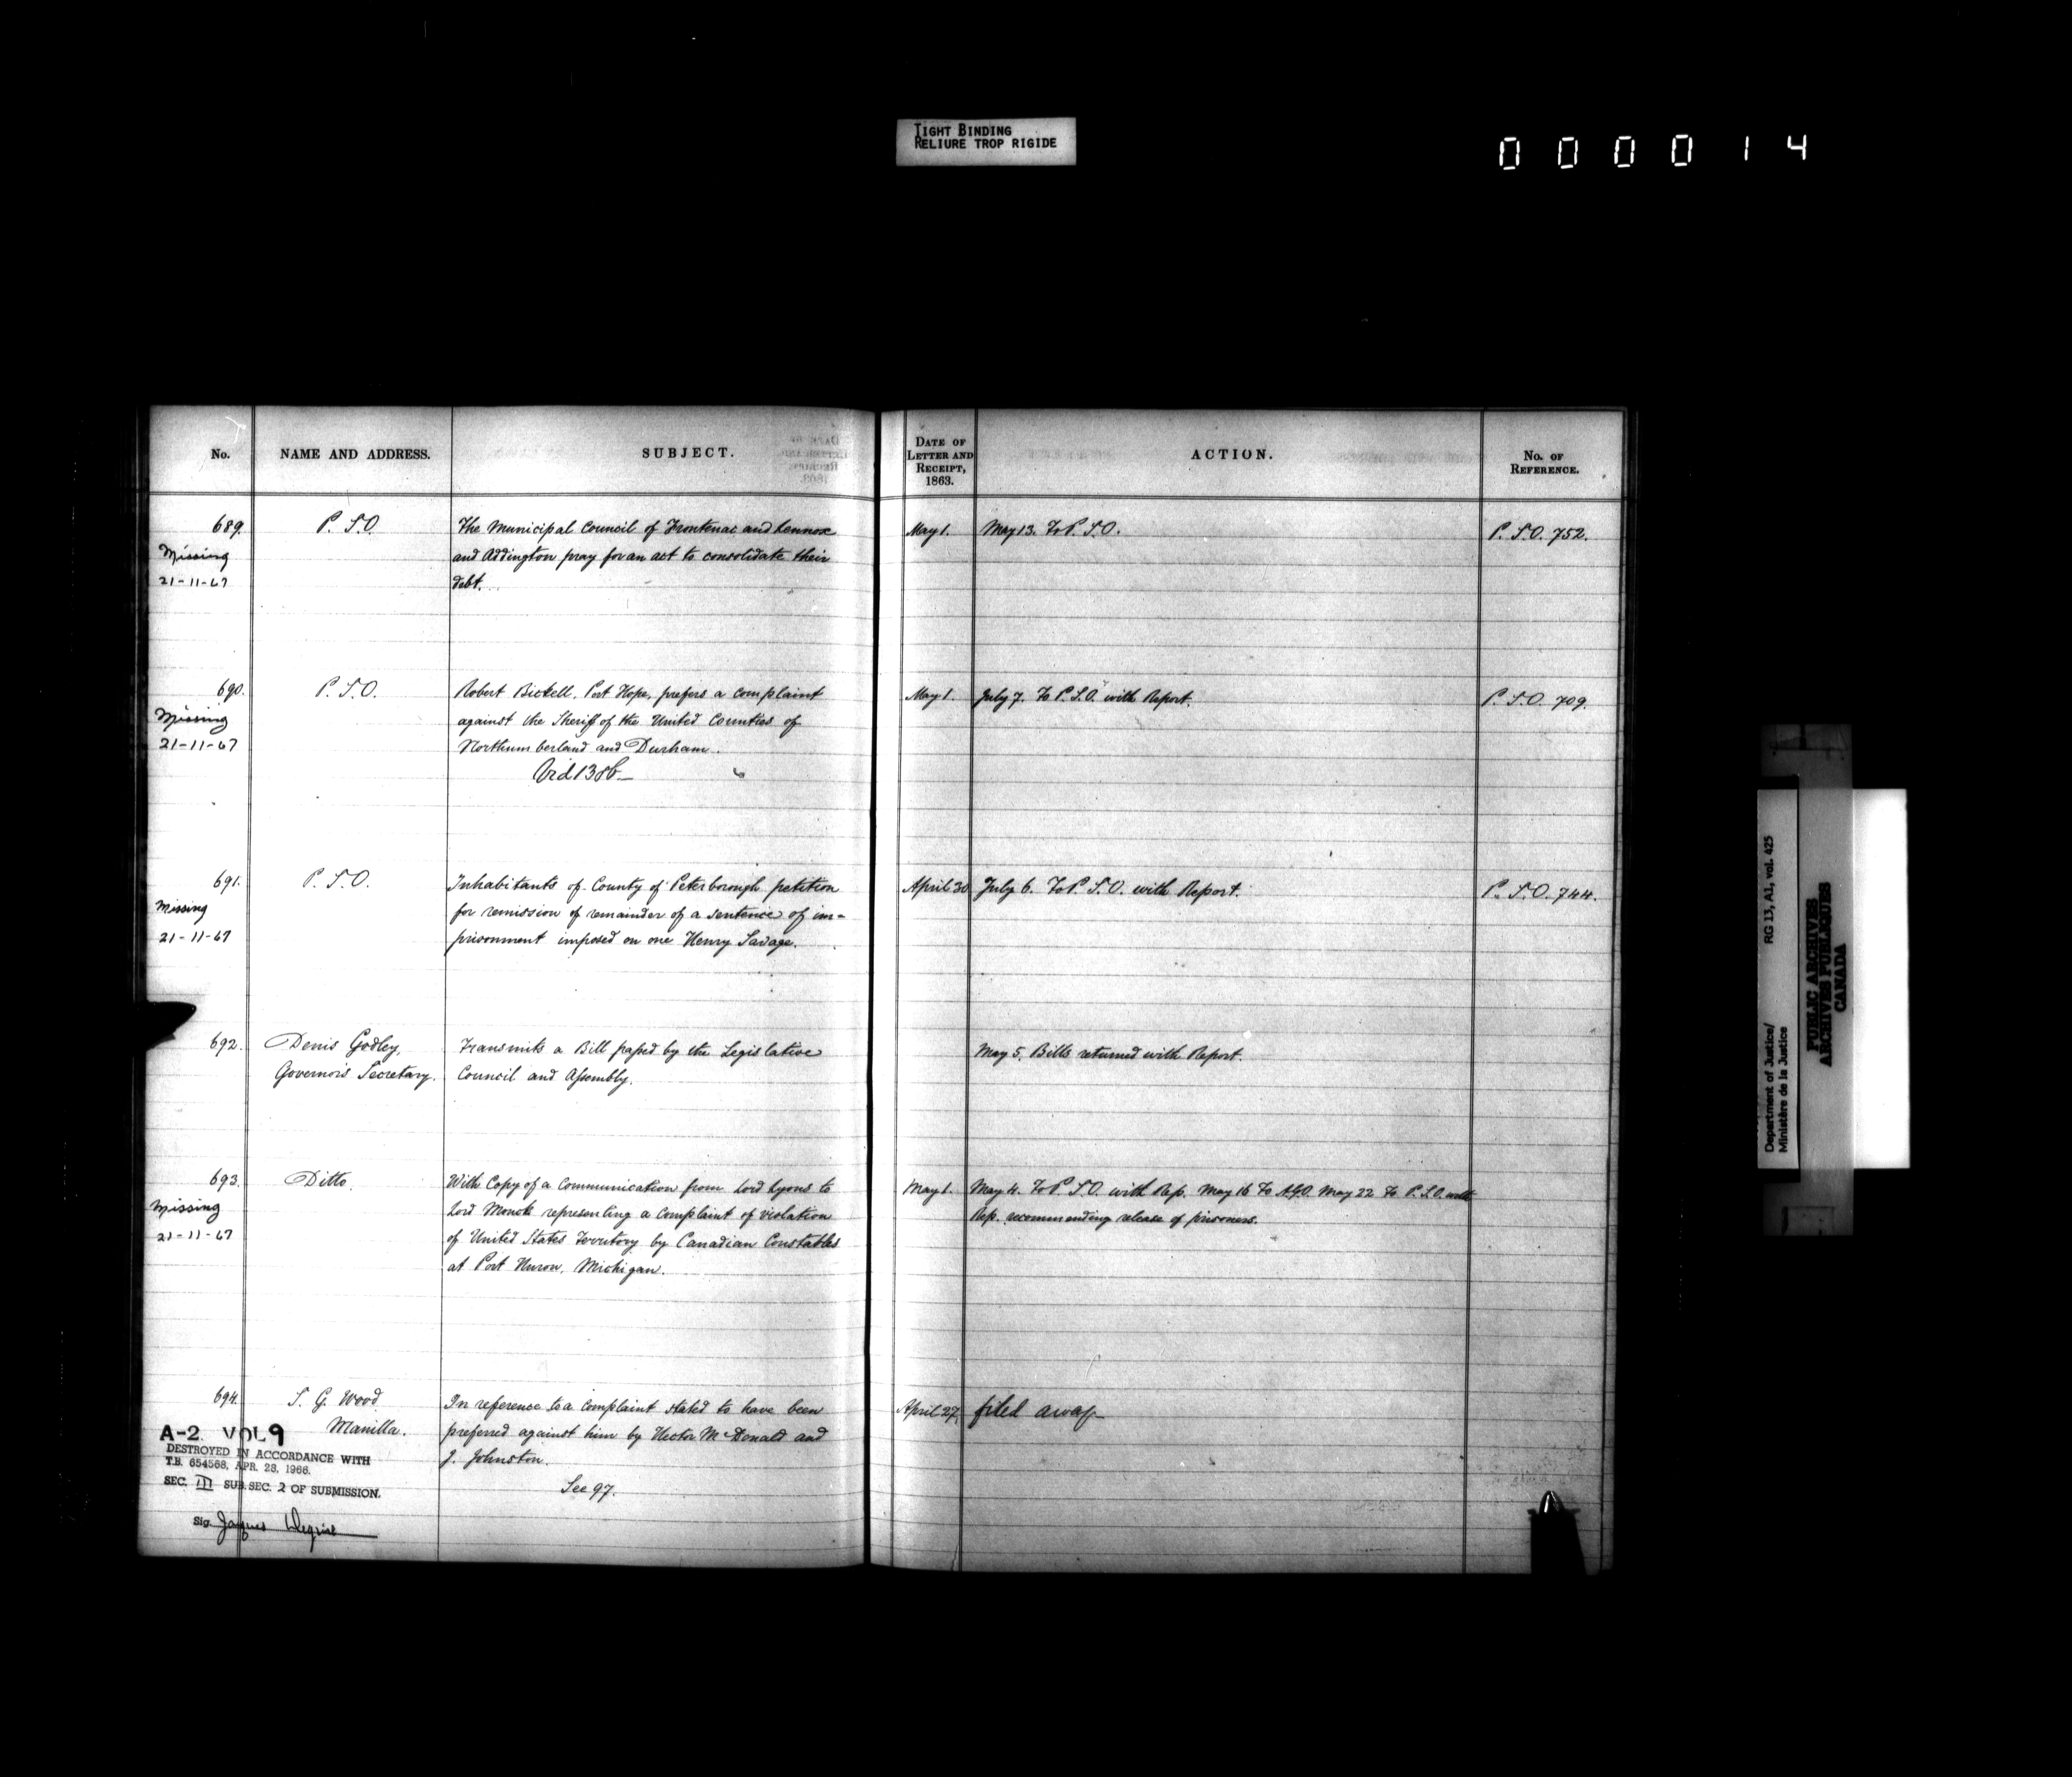 TIGHT BINDING
RELIURE TROP RIGIDE
000014
No.
NAME AND ADDRESS.
SUBJECT.
DATE OF
LETTER AND
RECEIPT,
1863.
ACTION.
No. OF
REFERENCE.
689.
P. S. O.
The Municipal Council of Frontenac and Lennox
May 1.
May 13. To P. S. O.
P. S. O. 752.
Missing
and Addington pray for an act to consolidate their
21-11-67
debt.
690.
P. S. O.
Robert Bickell, Port Hope, prefers a complaint
May 1.
July 7. To P. S. O. with Report.
P. S. O. 709.
Missing
against the Sheriff of the United Counties of
21-11-67
Northumberland and Durham.
Vid 1386
691.
P. S. O.
Inhabitants of County of Peterborough petition
April 30
July 6. To P. S. O. with Report.
P. S. O. 744.
Missing
for remission of remainder of a sentence of im-
21-11-67
prisonment imposed on one Henry Savage.
692.
Denis Godley,
Transmits a Bill passed by the Legislative
May 5. Bills returned with Report.
Governor's Secretary.
Council and Assembly.
693.
Ditto.
With Copy of a Communication from Lord Lyons to
May 1.
May 4. To P. S. O. with Rep. May 16 To A.G.O. May 22 To P. S. O. with
Missing
Lord Monck representing a complaint of violation
Rep. recommending release of prisoners.
21-11-67
of United States Territory by Canadian Constables
at Port Huron, Michigan.
694.
S. G. Wood
In reference to a complaint stated to have been
April 27.
filed away
Manilla.
preferred against him by Hector McDonald and
J. Johnston.
See 97.
A-2 VOL 9
DESTROYED IN ACCORDANCE WITH
T.B. 654568, APR. 28, 1966.
SEC. III SUB. SEC. 2 OF SUBMISSION.
Sig. Jacques
Department of Justice/
Ministère de la Justice
RG 13, A1, vol. 425
PUBLIC ARCHIVES
ARCHIVES PUBLIQUES
CANADA